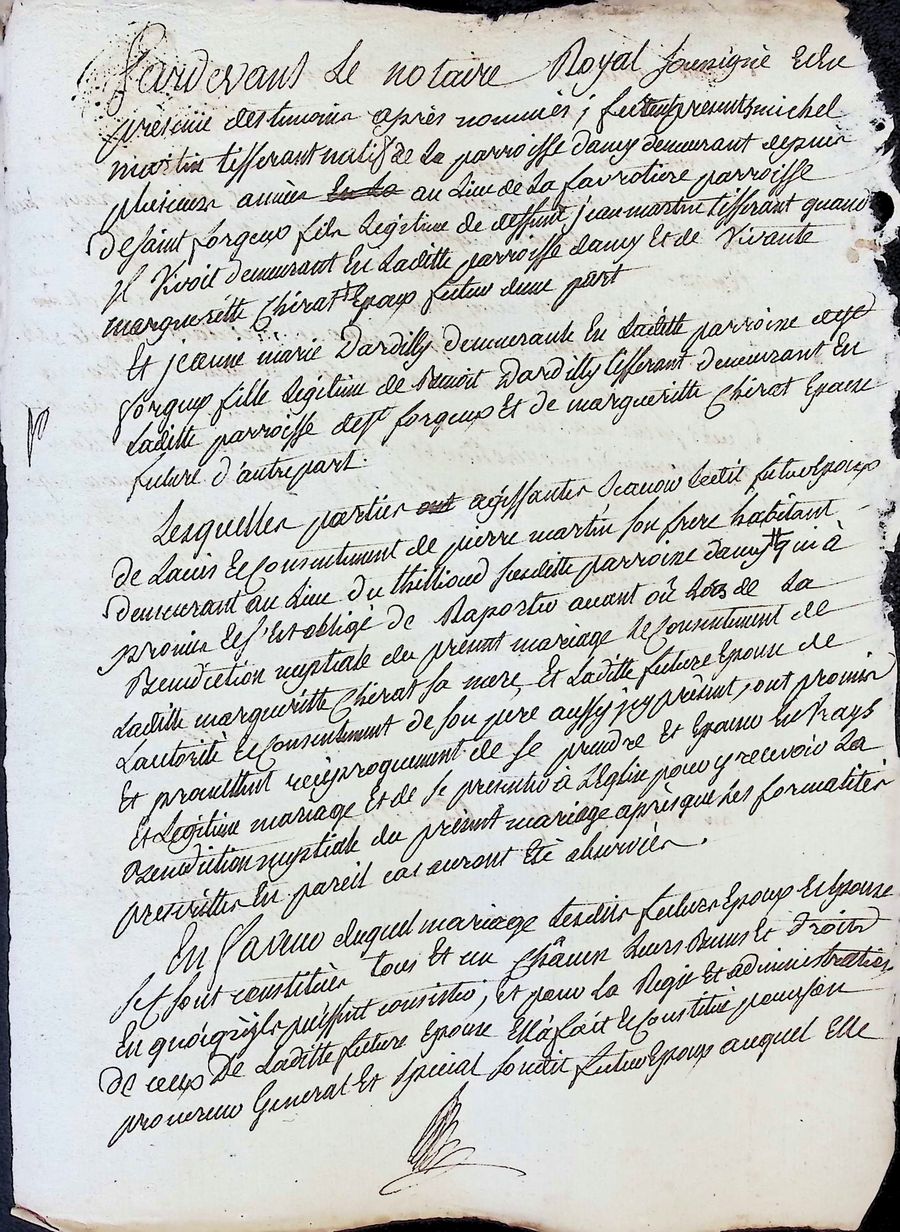 Pardevant Le notaire Royal soussigné et En
présence des temoins après nommés ; fut present michel
martin tisserant natif de La parroisse damy demeurant depuis
plusieurs années En La au Lieu de La favrotiere parroisse
de saint forgeux fils Legitime de deffunt jean martin tisserant quand
il Vivoit demeurant En Laditte parroisse damy Et de Vivante
margueritte Chirat Epoux futur dune part
Et jeanne marie Dardilly demeurante En Laditte parroisse de st
forgeux fille Legitime de Benoit Dardilly tisserant demeurant En
Laditte parroisse de st forgeux Et de margueritte Chirat Epouse
future d'autre part.
Lesquelles parties ont agissantes scavoir Ledit futur Epoux
de Lavis et Consentement de pierre martin son frere habitant
demeurant au Lieu du thillioud susditte parroisse damy qui à
promis et s'Est obligé de Raporter avant où Lors de La
Benediction nuptiale du présent mariage le Consentement de
Laditte margueritte Chirat sa mere, Et Laditte future Epouse de
Lautorité et Consentement de son pere aussy icy présent, ont promis
Et promettent reciproquement de se prendre Et Epouser En vrays
Et Legitime mariage Et de se presenter à L'Eglise pour y recevoir La
Benediction nuptiale du présent mariage après que Les formalités
prescrittes En pareil cas auront Eté observées.
En faveur duquel mariage Lesdits futurs Epoux et Epouse
se sont constitués tous Et un châcun Leurs Biens Et Droits
En quoi qu'ils puissent consister, Et pour La Regie Et administration
de ceux De Laditte future Epouse Elle à fait et Constitué pour son
procureur General Et special Ledit futur Epoux auquel Elle